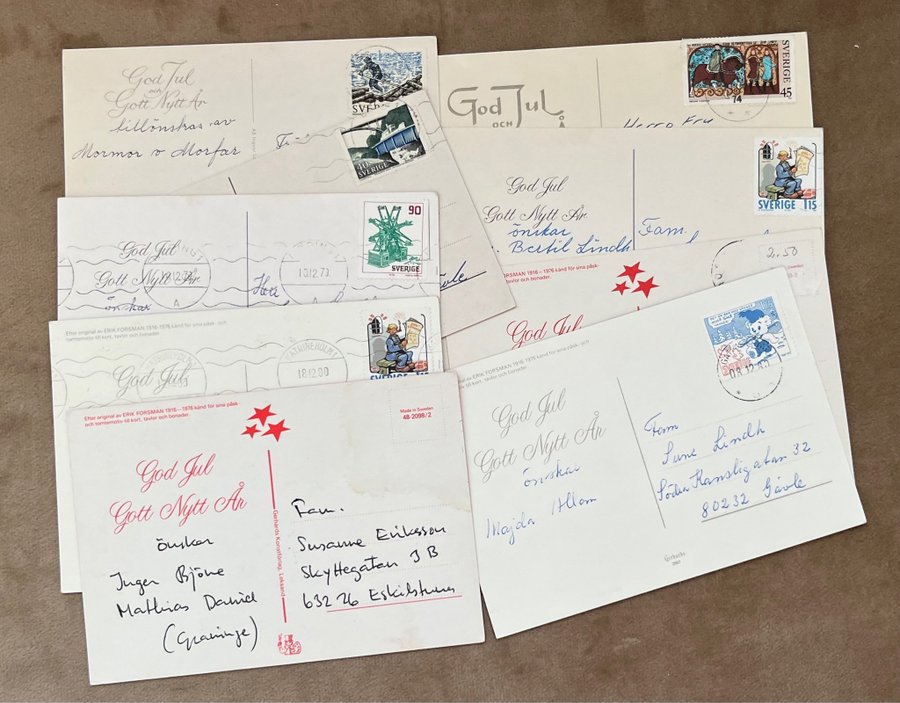 God Jul
och
Gott Nytt År
tillönskas av
Mormor o Morfar
SVERIGE
God Jul
OCH
Herro Fru
SVERIGE
45
74
SVERIGE
90
SVERIGE
God Jul
Gott Nytt År
önskar
10.12.79
Herr
Gävle
God Jul
Gott Nytt År
önskar
Bertil Lindh
Fam.
SVERIGE 115
FORSMAN 1916 - 1976 känd för sina påsk-
och tomtemotiv till kort, tavlor och bonader.
God Jul
2.50
Efter original av ERIK FORSMAN 1916-1976 känd för sina påsk- och
tomtemotiv till kort, tavlor och bonader.
God Jul
KATRINEHOLM 1
18.12.80
Efter original av ERIK FORSMAN 1916 - 1976 känd för sina påsk-
och tomtemotiv till kort, tavlor och bonader.
Made in Sweden
48-2098/2
God Jul
Gott Nytt År
önskar
Inger Björne
Mathias David
(Graninge)
Gerhards Konstförlag, Leksand
Fam.
Susanne Eriksson
Skyttegatan 3 B
632 26 Eskilstuna
God Jul
Gott Nytt År
önskar
Majda Allom
Fam
Sune Lindh
Södra Kansligatan 32
80232 Gävle
Gerhards